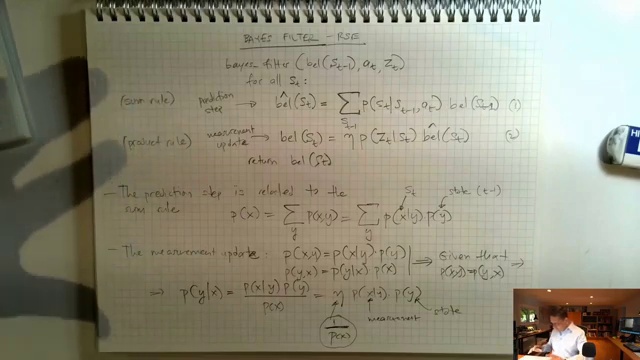 BAYES FILTER - RSE
bayes filter (bel(S_{t-1}), a_t, Z_t)
for all S_t:
(sum rule) prediction step → \hat{bel}(S_t) = ∑_{S_{t-1}} p(S_t|S_{t-1}, a_t) bel(S_{t-1}) (1)
(product rule) measurement update → bel(S_t) = η p(Z_t|S_t) \hat{bel}(S_t) (2)
return bel(S_t)
- The prediction step is related to the S_t state (t-1)
sum rule p(x) = ∑_y p(x,y) = ∑_y p(x|y) p(y)
- The measurement update: p(x,y) = p(x|y) · p(y) ⟹ Given that →
p(y,x) = p(y|x) p(x) p(x,y) = p(y,x)
⟹ p(y|x) = p(x|y) p(y) / p(x) = η p(x|y) · p(y)
measurement state
1/p(x)